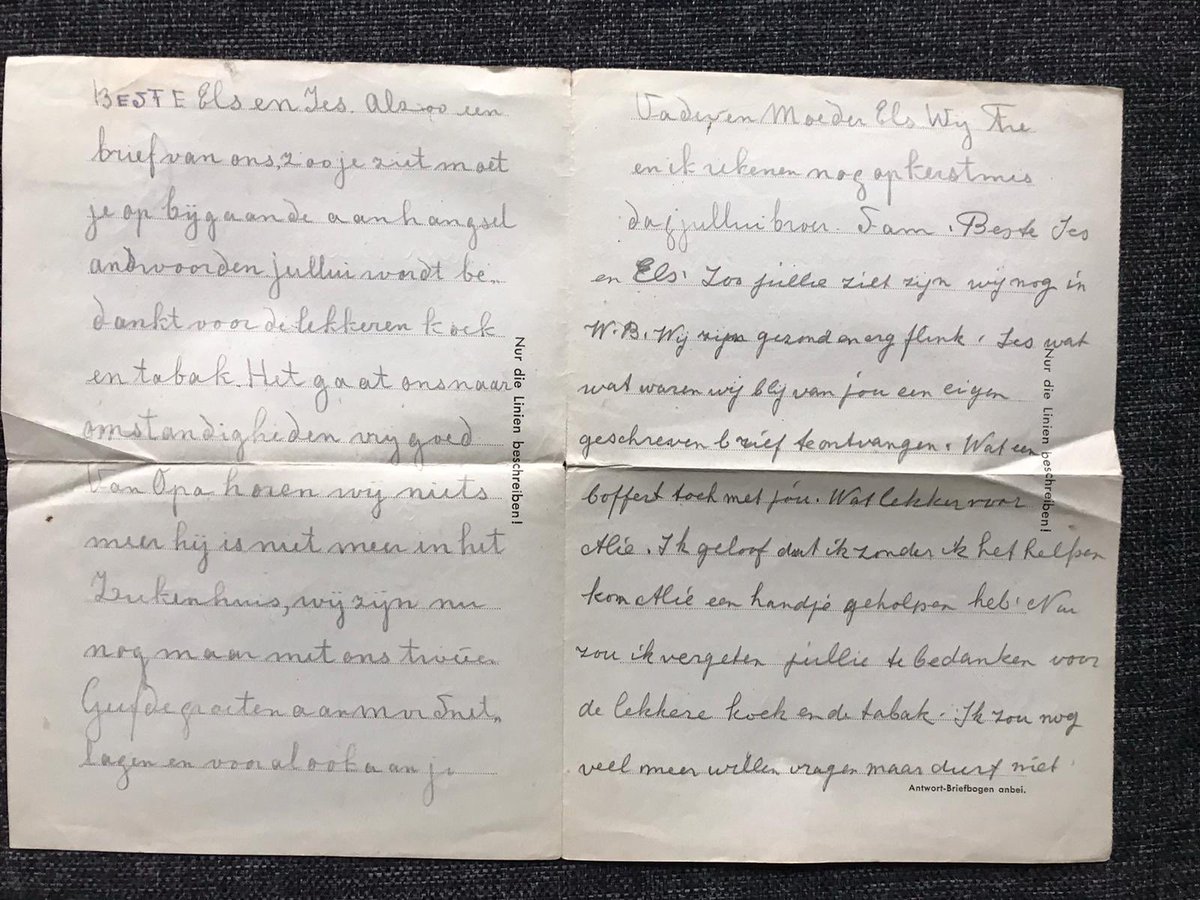 BESTE Els en Jes. Als een
brief van ons, zoo je ziet moet
je op bijgaande aanhangsel
andwoorden jullui wordt be„
dankt voor de lekkeren koek
en tabak. Het gaat ons naar
omstandigheden vrij goed
Van Opa horen wij niets
meer hij is niet meer in het
Ziekenhuis, wij zijn nu
nog maar met ons tweeën
Geef de groeten aan m v Snet„
lagen en vooral ook aan je
Nur die Linien beschreiben!
Vader en Moeder Els Wij
en ik rekenen nog op kerstmis
dag jullui broer. Sam. Beste Jes
en Els. Zoo jullie ziet zijn wij nog in
W.B. Wij zijn gezond en erg flink. Jes wat
wat waren wij blij van jou een eigen
geschreven brief te ontvangen. Wat een
boffert toch met jou. Wat lekker voor
Alie. Ik geloof dat ik zonder ik het helpen
kon Alie een handje geholpen heb. Nu
zou ik vergeten jullie te bedanken voor
de lekkere koek en de tabak. Ik zou nog
veel meer willen vragen maar durf niet
Nur die Linien beschreiben!
Antwort-Briefbogen anbei.